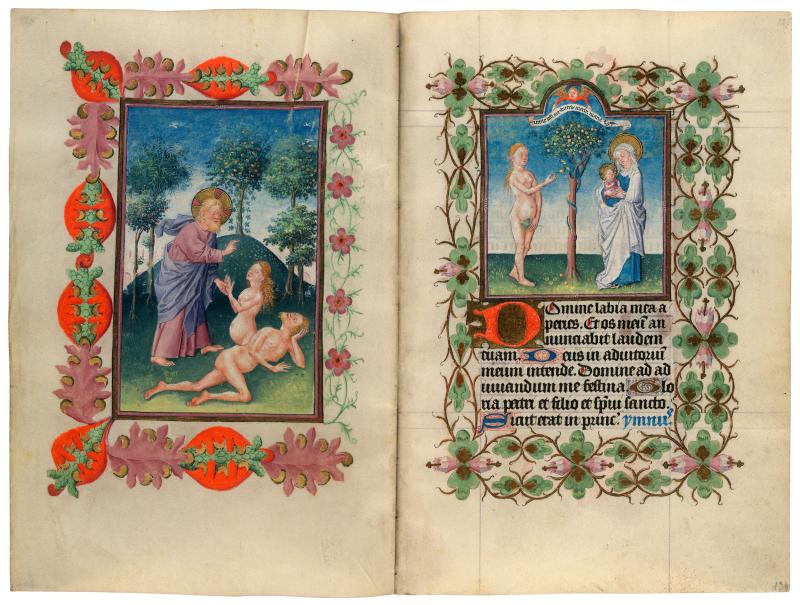 Domine labia mea a
peries. Et os meū an
nunciabit laudem
tuam. Deus in adiutoriū
meum intende. Domine ad ad
iuuandum me festina. Glo
ria patri et filio et spūi sancto.
Sicut erat in princ̄. ymnus.